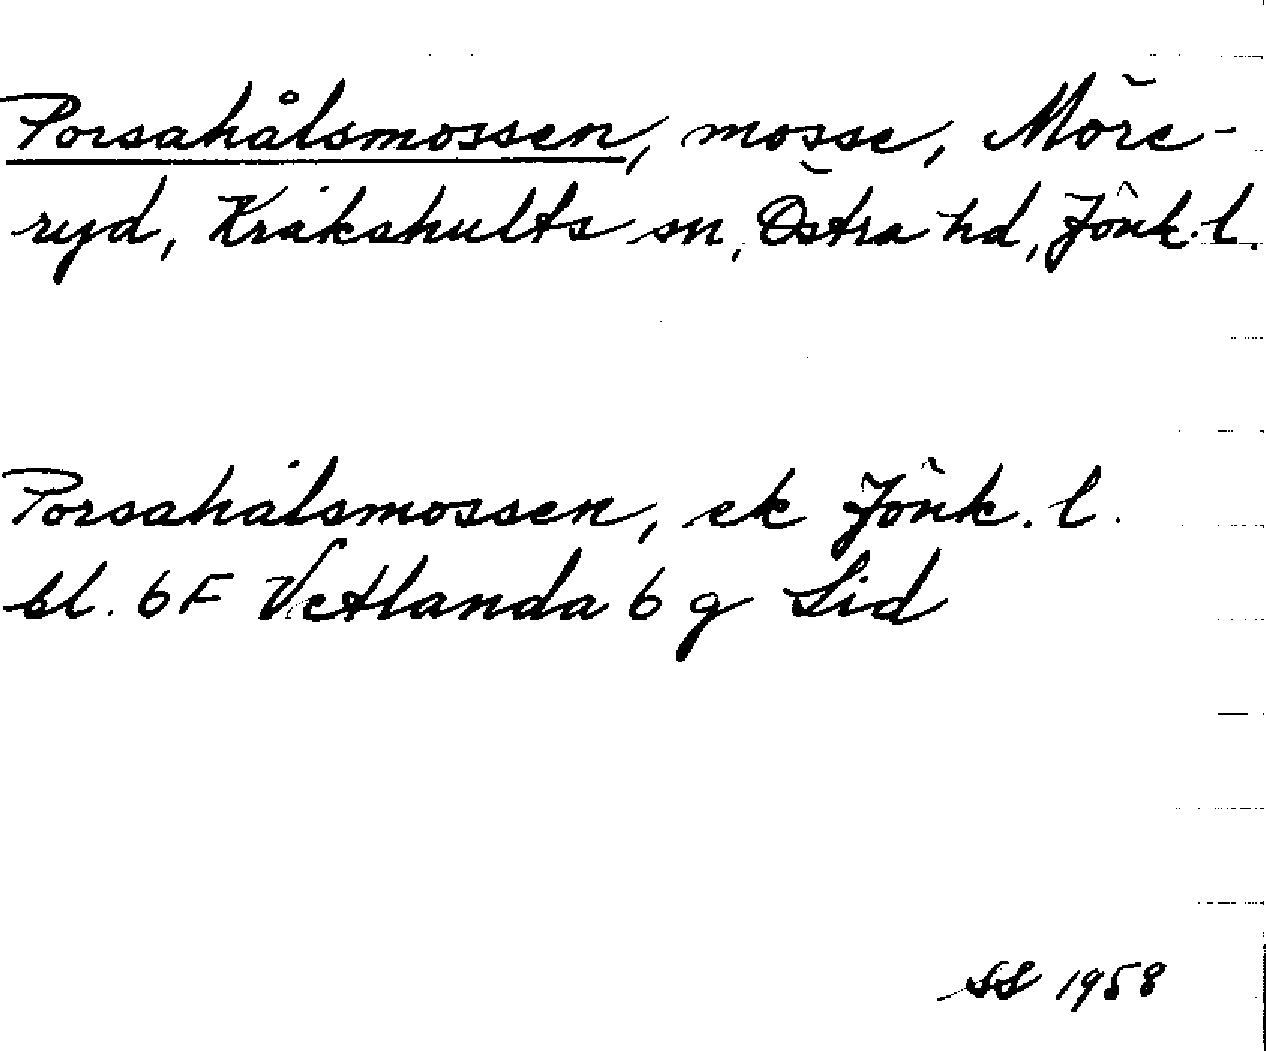 Porsahålsmossen, mosse, Möre-
ryd, Kråkshults sn, Östra hd, Jönk. l.
Porsahålsmossen, ek Jönk. l.
bl. 6F Vetlanda 6 g Lid
SS 1958